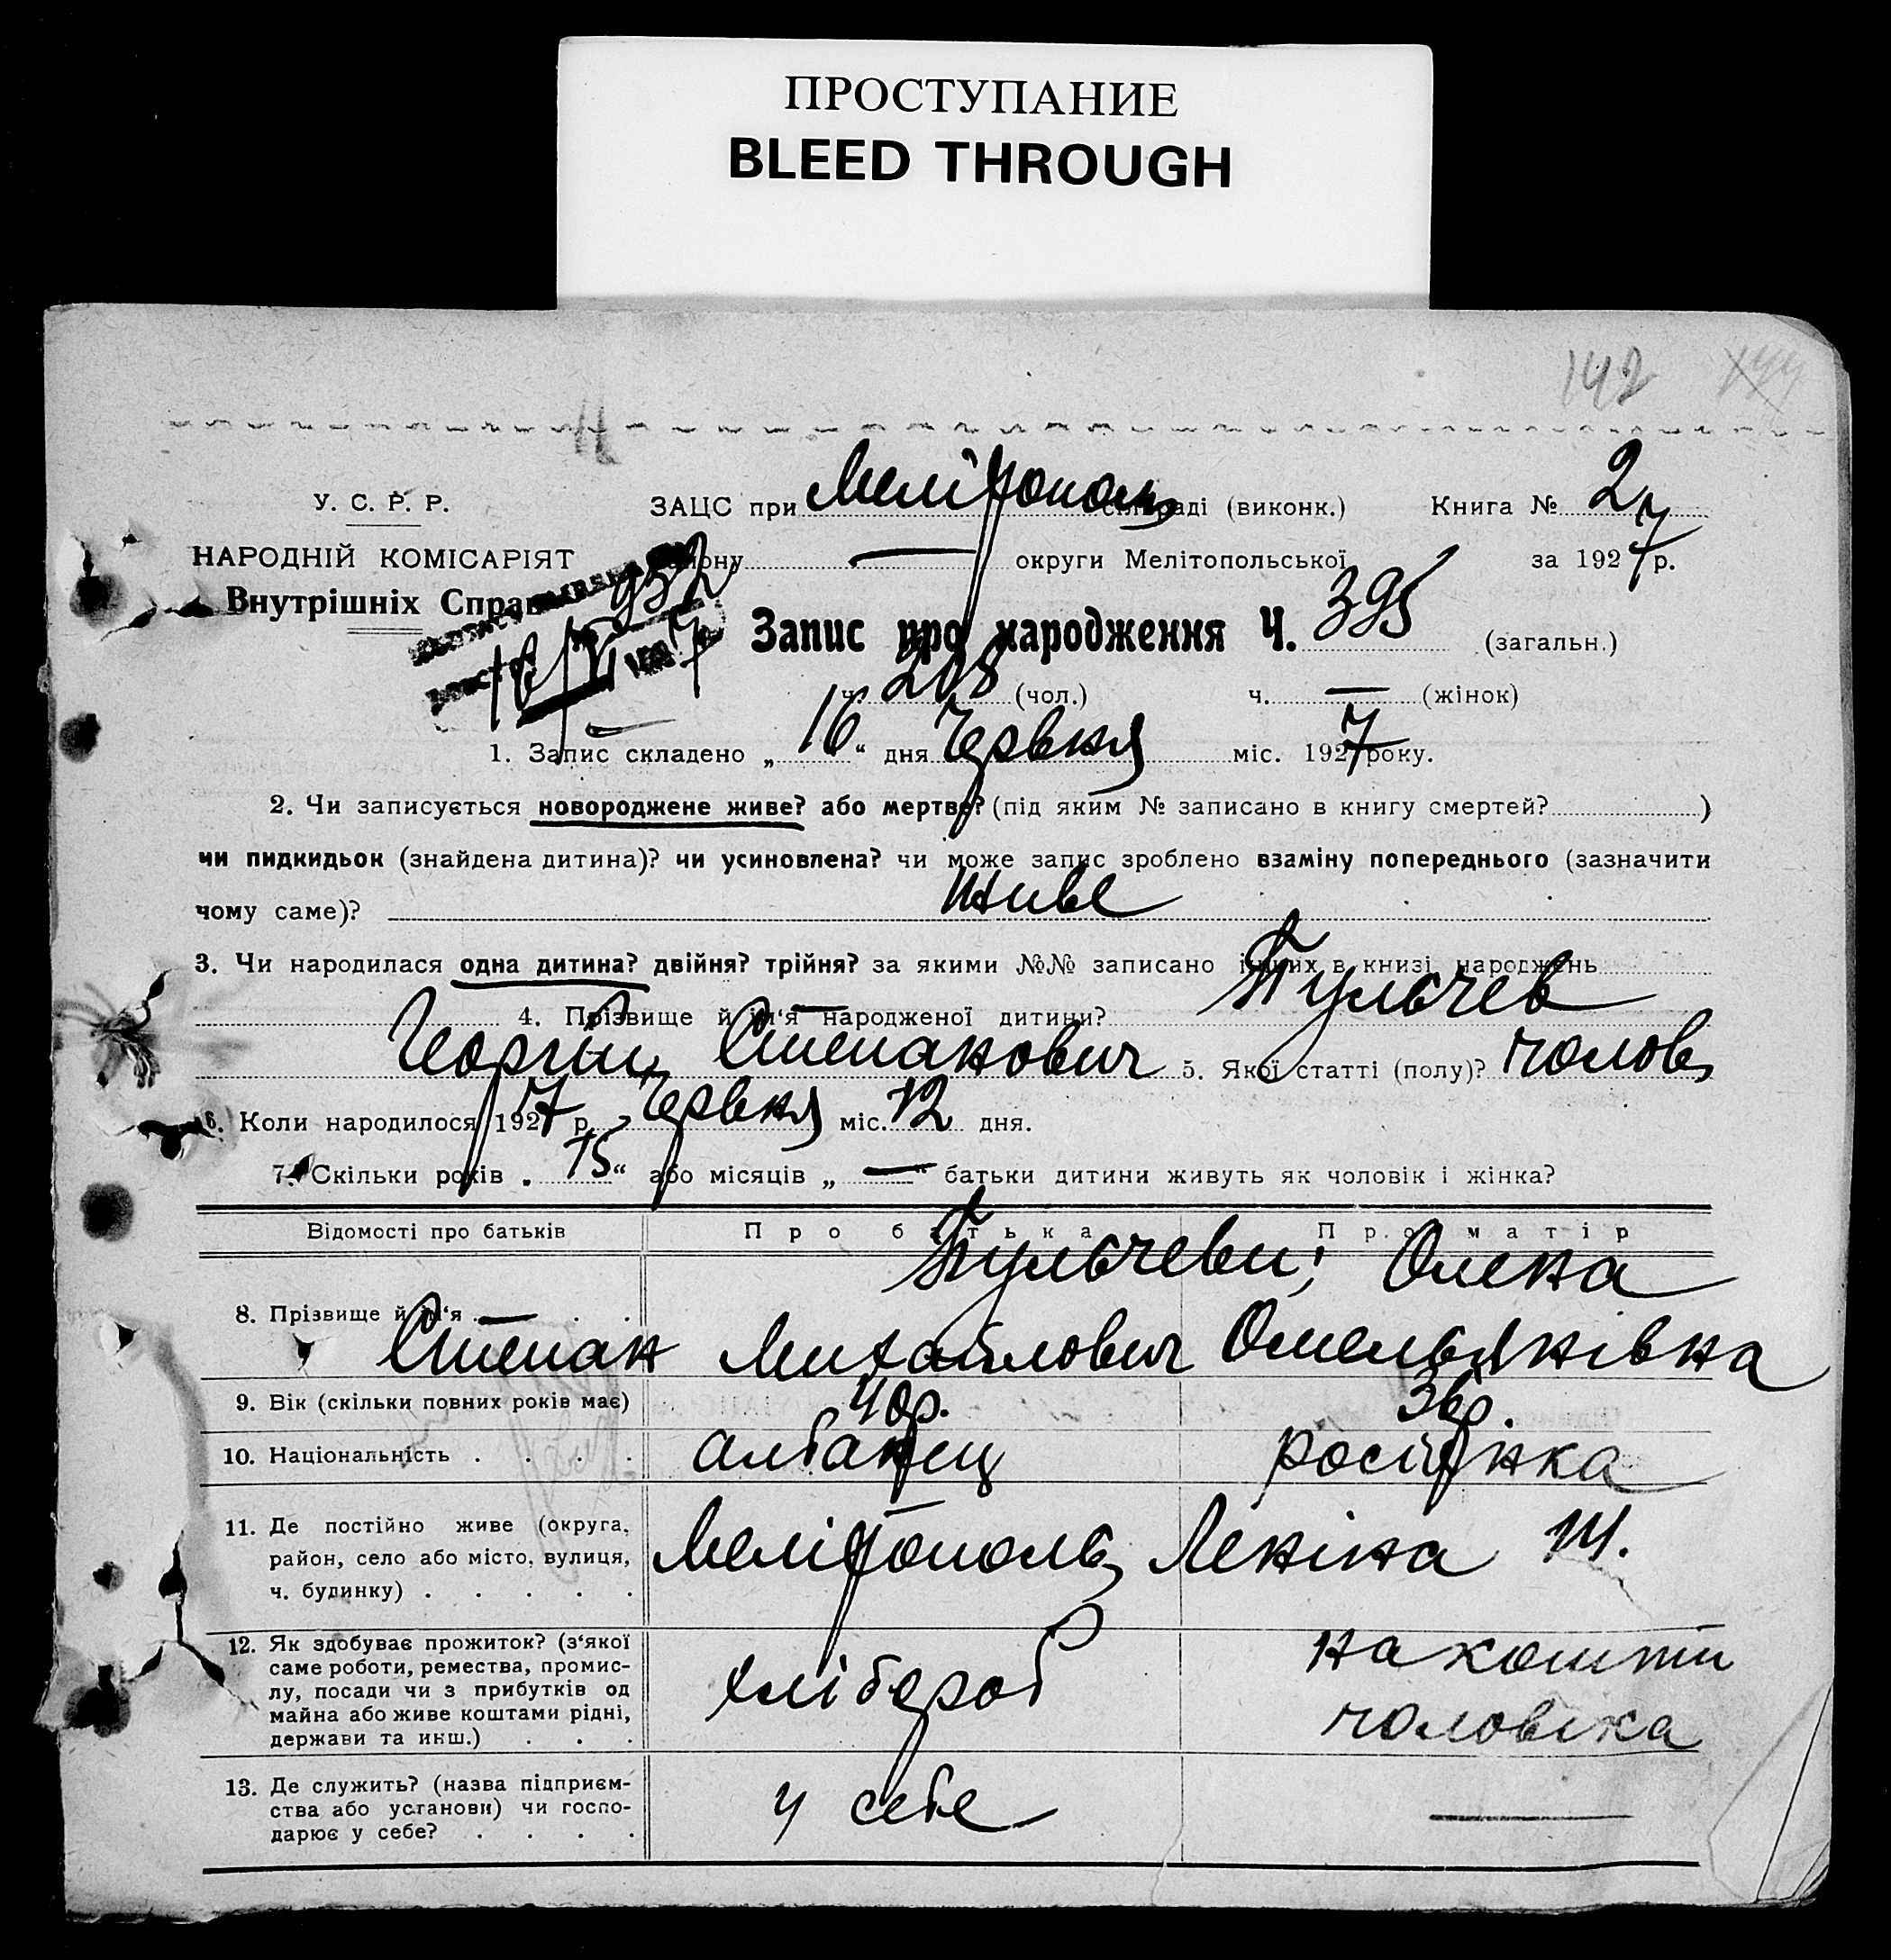 ПРОСТУПАНИЕ
BLEED THROUGH
142 144
У. С. Р. Р. ЗАЦС при Мелітополь сільраді (виконк.) Книга № 2
НАРОДНІЙ КОМІСАРІЯТ району — округи Мелітопольської за 1927 р.
Внутрішніх Справ 932
Запис про народження Ч. 395 (загальн.)
16/VI 7
ч. 208 (чол.) ч. — (жінок)
1. Запис складено „ 16 “ дня Червня міс. 1927 року.
2. Чи записується новороджене живе? або мертве? (під яким № записано в книгу смертей? )
чи пидкидьок (знайдена дитина)? чи усиновлена? чи може запис зроблено взаміну попереднього (зазначити
чому саме)? живе
3. Чи народилася одна дитина? двійня? трійня? за якими №№ записано інших в книзі народжень
4. Прізвище й ім‘я народженої дитини? Тульчев
Георгій Степанович 5. Якої статті (полу)? чолов
6. Коли народилося 1927 р. Червня міс. 12 дня.
7. Скільки років „ 15 “ або місяців „ — “ батьки дитини живуть як чоловік і жінка?
Відомості про батьків Про батька Про матір
Тульчеви; Олена
8. Прізвище й ім‘я —
Степан Михайлович Омельянівна
9. Вік (скільки повних років має) 40р. 36р.
10. Національність албанец росіянка
11. Де постійно живе (округа,
район, село або місто, вулиця,
ч. будинку) Мелітополь, Леніна 141.
12. Як здобуває прожиток? (з‘якої
саме роботи, ремества, промис-
лу, посади чи з прибутків од
майна або живе коштами рідні,
держави та инш.) хлібороб на кошти
чоловіка
13. Де служить? (назва підприєм-
ства або установи) чи госпо-
дарює у себе? у себе —